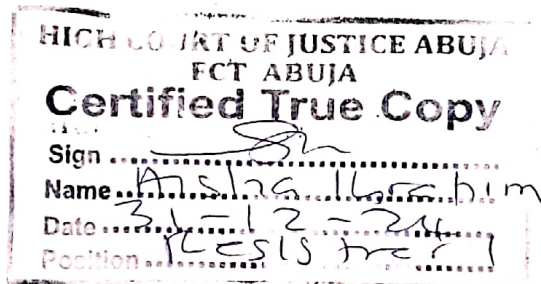 HIGH COURT OF JUSTICE ABUJA
FCT ABUJA
Certified True Copy
Sign
Name Aisha Ibrahim
Date 31-12-24
Position